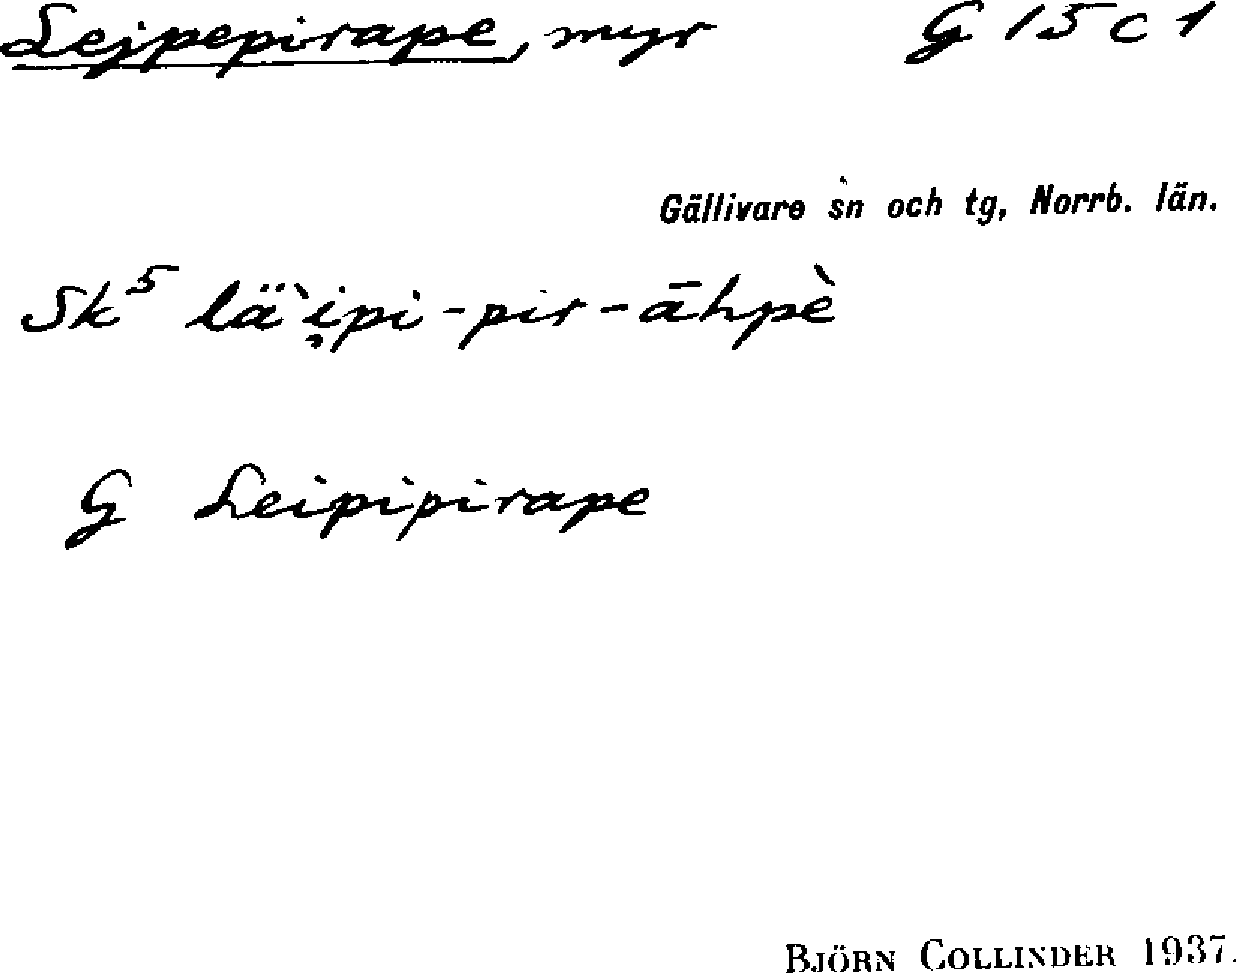 Lejpepirape, myr G 15 c 1
Gällivare sn och tg, Norrb. län.
Sk⁵ lä`i̯pi-pir-āhpè
G Leipipirape
BJÖRN COLLINDER 1937.